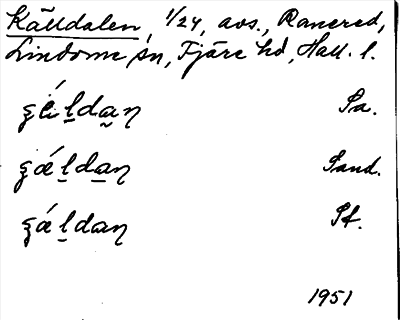 Källdalen, 1/24, avs., Ranered,
Lindome sn, Fjäre hd, Hall. l.
ɕǽḻda̰ɳ Pa.
ɕǽḻda̱ɳ Pand.
ɕǽḻdaɳ Pf.
1951